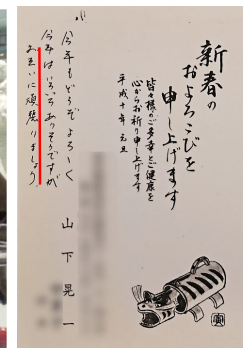 新春の
およろこびを
申し上げます
皆々様のご多幸とご健康を
心からお祈り申し上げます
平成十年 元旦
今年もどうぞよろしく
今年はいろいろありそうですが
お互いに頑張りましょう
山下晃一
寅